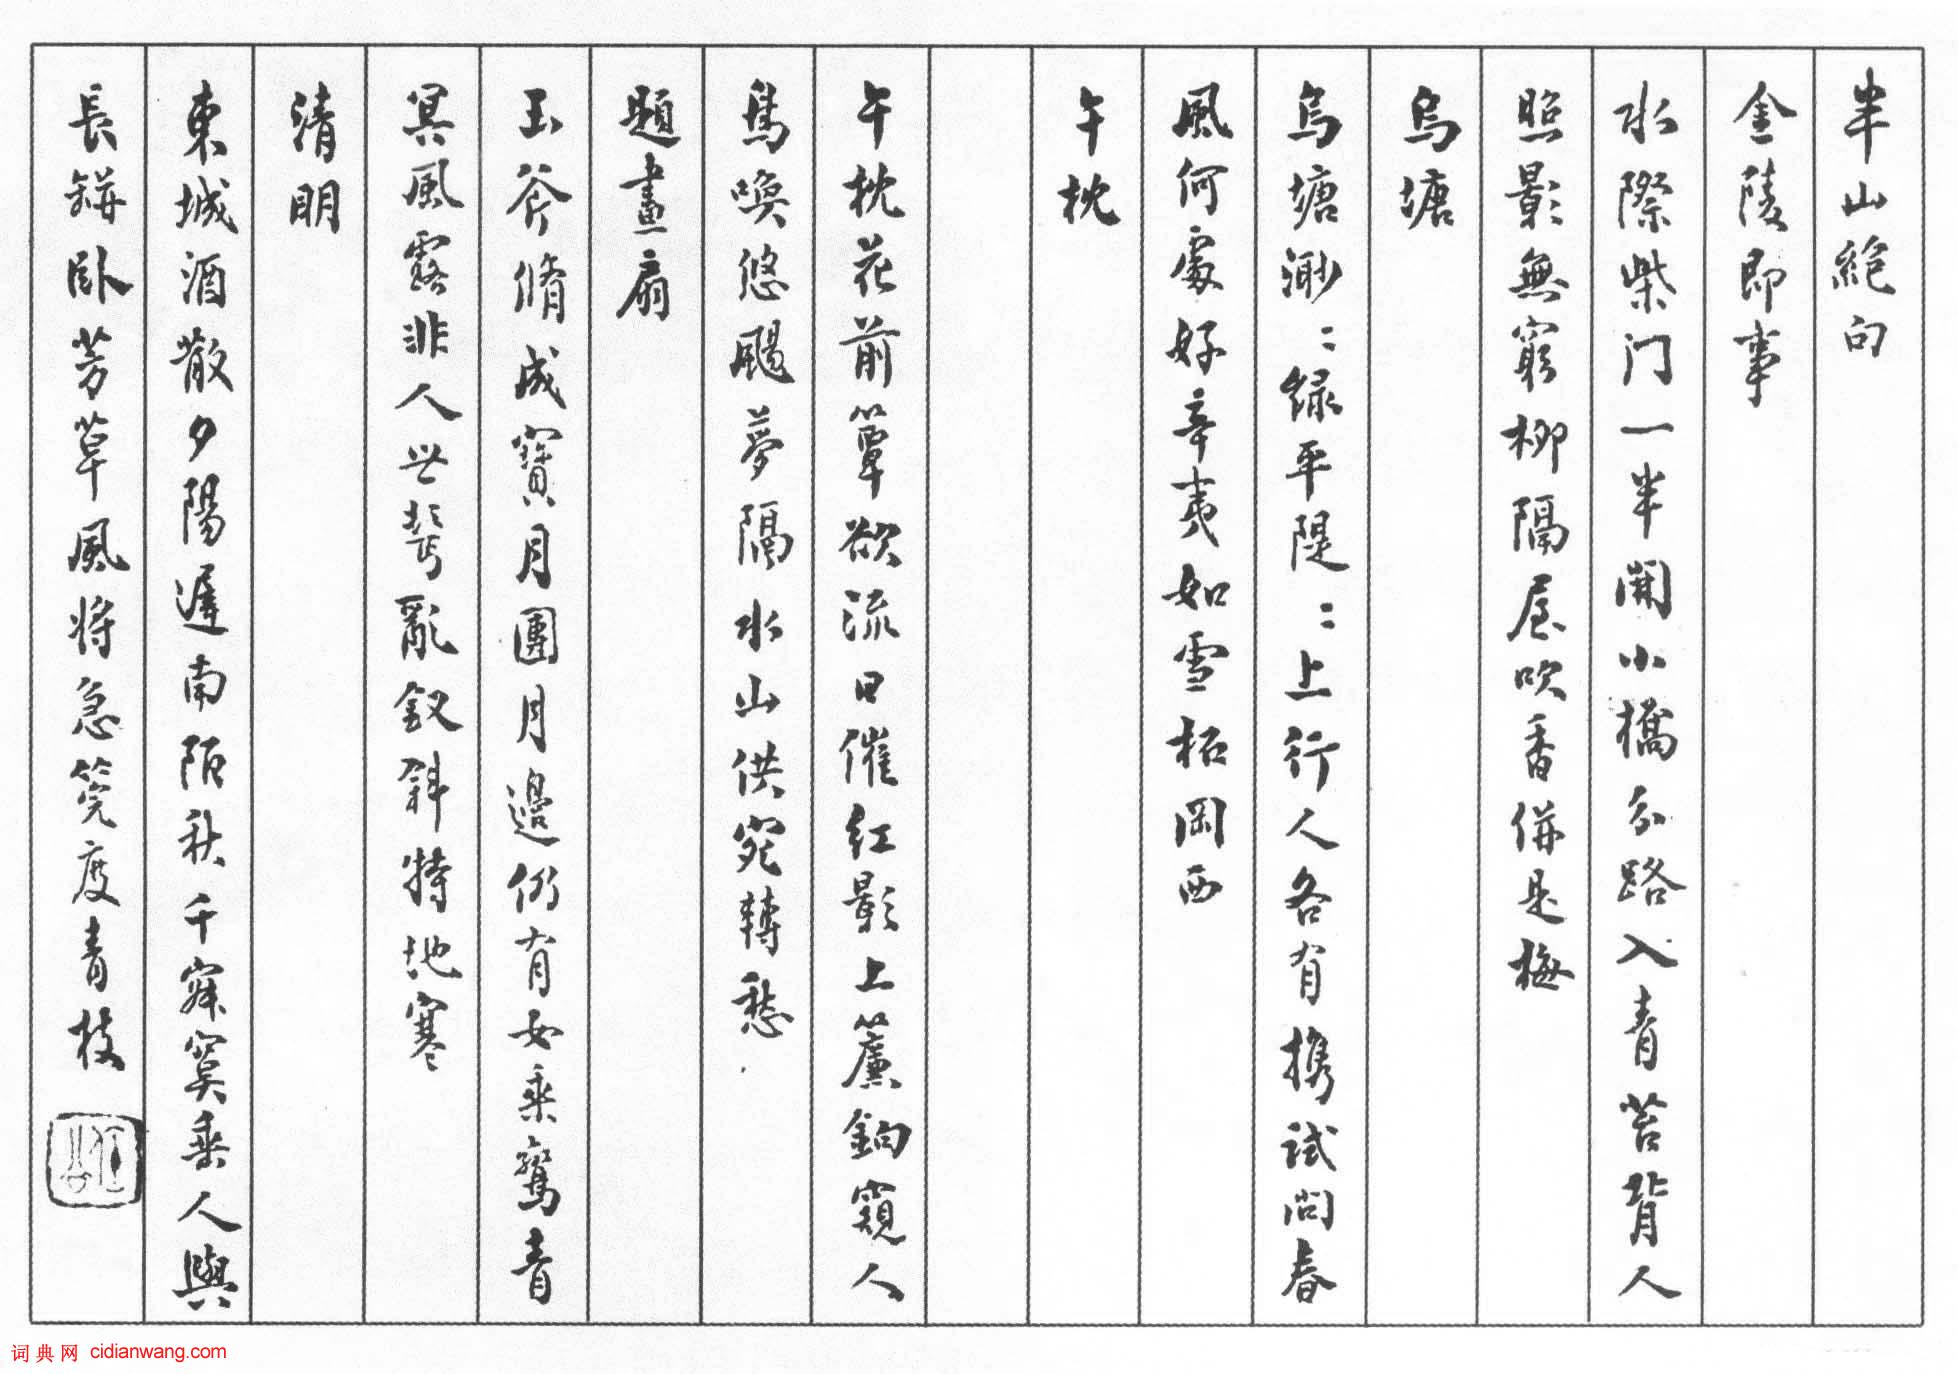 半山絕句
金陵即事
水際柴门一半開小橋分路入青苔背人
照影無窮柳隔屋吹香併是梅
烏塘
烏塘渺〻綠平隄〻上行人各有携試問春
風何處好辛夷如雪柘岡西
午枕
午枕花前簟欲流日催紅影上簾鉤窺人
鳥喚悠颺夢隔水山供宛轉愁
題畫扇
玉斧脩成寶月團月邊仍有女乘鸞青
冥風露非人世鬢亂釵斜特地寒
清明
東城酒散夕陽遲南陌秋千寂寞垂人與
長缾臥芳草風將急筦度青枝
词典网 cidianwang.com